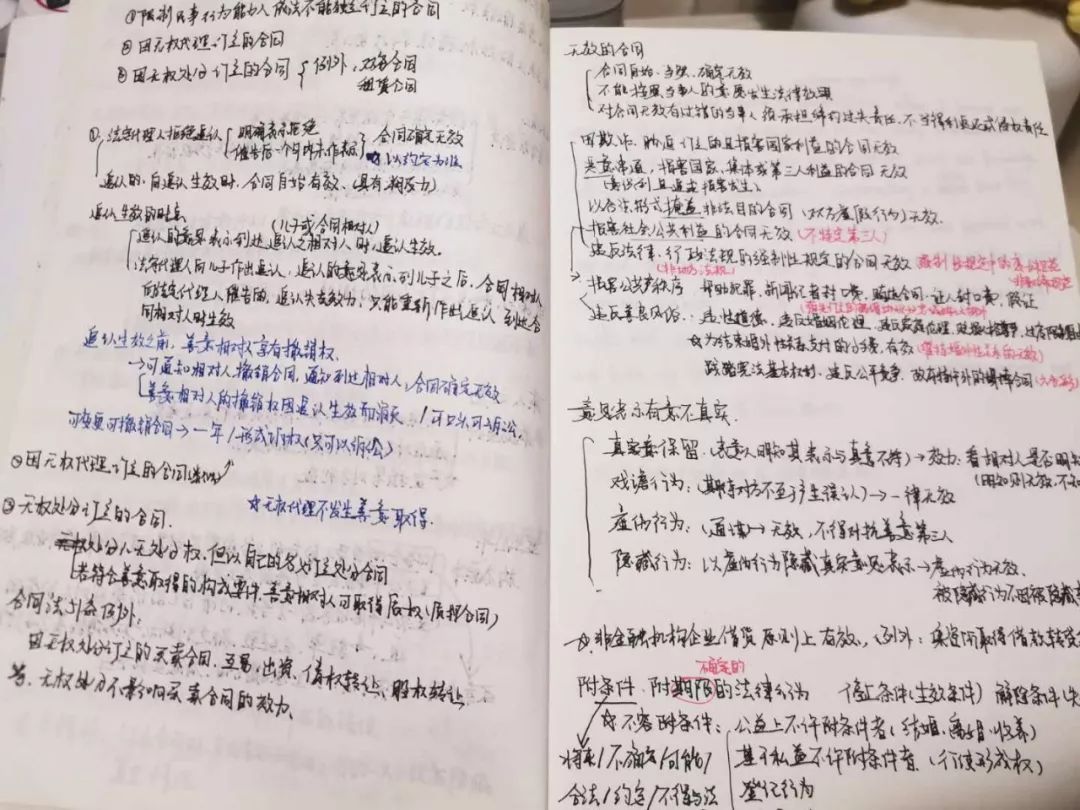 ①限制民事行为能力人依法不能独立订立的合同
②因无权代理订立的合同
③因无权处分订立的合同 例外:买卖合同
租赁合同
①法定代理人拒绝追认 明确表示拒绝 合同确定无效
催告后一个月内未作表示 以约定为准
追认的,自追认生效时,合同自始有效(具有溯及力)
追认生效的时点
(儿子或合同相对人)
追认的意思表示到达追认之相对人时,追认生效。
法定代理人向儿子作出追认,追认的意思表示到儿子之后,合同相对人
向法定代理人催告的,追认失去效力,只能重新作出追认 到达合
同相对人时生效
追认生效之前,善意相对人享有撤销权。
→可通知相对人撤销合同,通知到达相对人,合同确定无效
善意相对人的撤销权因追认生效而消灭 / 可口头可诉讼
可变更可撤销合同→一年/形成诉权(只可以诉讼)
②因无权代理订立的合同
③无权处分订立的合同. ☆无权代理不发生善意取得.
处分人无处分权,但以自己的名义订立处分合同
若符合善意取得的构成要件,善意相对人可取得后权(质押合同)
合同法51条例外:
因无权处分订立的买卖合同、互易、出资、债权转让、股权转让
等,无权处分不影响买卖合同的效力.
无效的合同
合同自始、当然、确定无效
不能按照当事人的意愿发生法律效果
对合同无效有过错的当事人须承担缔约过失责任、不当得利返还或侵权责任
因欺诈、胁迫订立的且损害国家利益的合同无效
恶意串通,损害国家、集体或第三人利益的合同无效
以合法形式掩盖非法目的合同(双方虚假行为)无效.
损害社会公共利益的合同无效(不特定第三人)
违反法律、行政法规的强制性规定的合同无效
损害公共秩序 帮助犯罪,新闻记者封口费,赌债合同,证人封口费,
违反善良风俗:违性道德,违反婚姻伦理,违反家庭伦理
☆为结束婚外性关系支付的分手费,有效
限制宪法基本权利,违反公平竞争,
意思表示有意不真实.
真实意思保留(表意人明知其表示与真意不符)→效力:看相对人是否明知
(明知则无效,不知
戏谑行为:(期待对方不至于产生误认)→一律无效
虚伪行为:(通谋)→无效,不得对抗善意第三人
隐藏行为:以虚伪行为隐藏真实意思表示→虚伪行为无效.
☆非金融机构企业借贷原则上有效.(例外:
确定的
附条件、附期限的法律行为 停止条件(生效条件) 解除条件(失
☆不容附条件:公益上不许附条件者(结婚,离婚,收养)
将来/不确定/可能/ 基于私益不许附条件者(行使形成权)
合法/约定/不得与法 登记行为